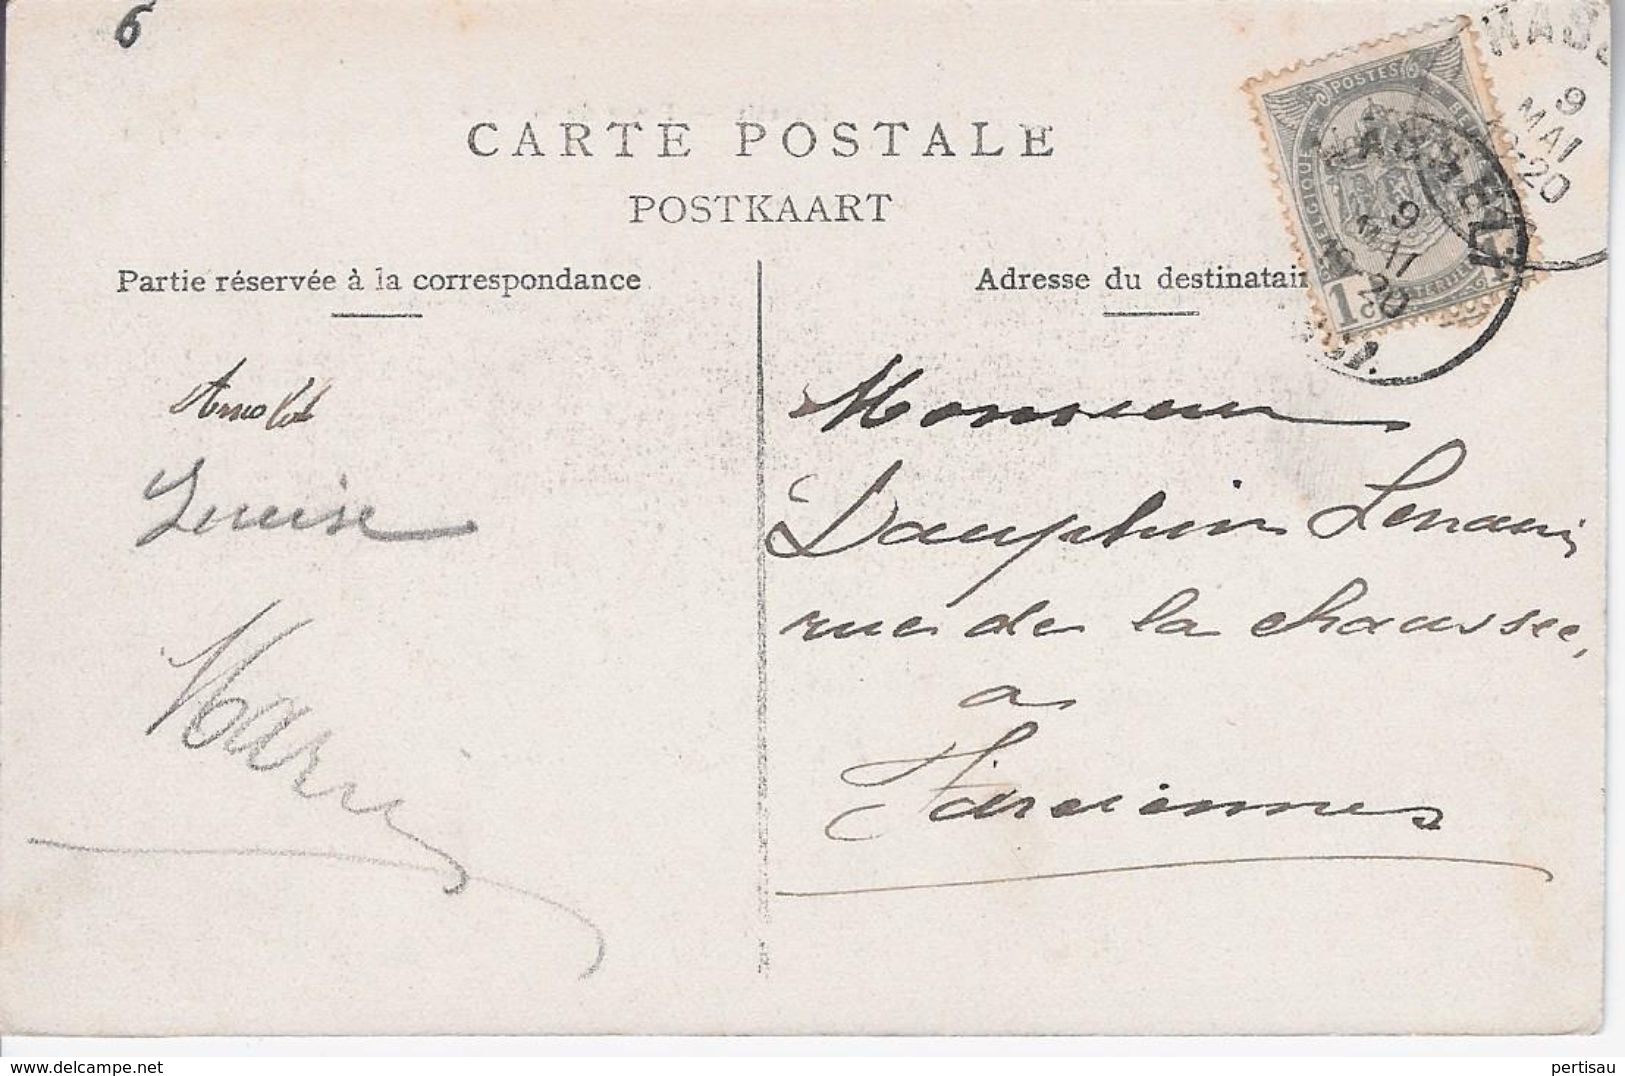 6
CARTE POSTALE
POSTKAART
Partie réservée à la correspondance
Adresse du destinatair
POSTES
BELGIQUE
1c
HASS
9
MAI
20
HASSELT
9
MAI
20
Arnold
Louise
Marie
Monsieur
Dauphin Lenain,
rue de la chaussee,
a
Farciennes
pertisau